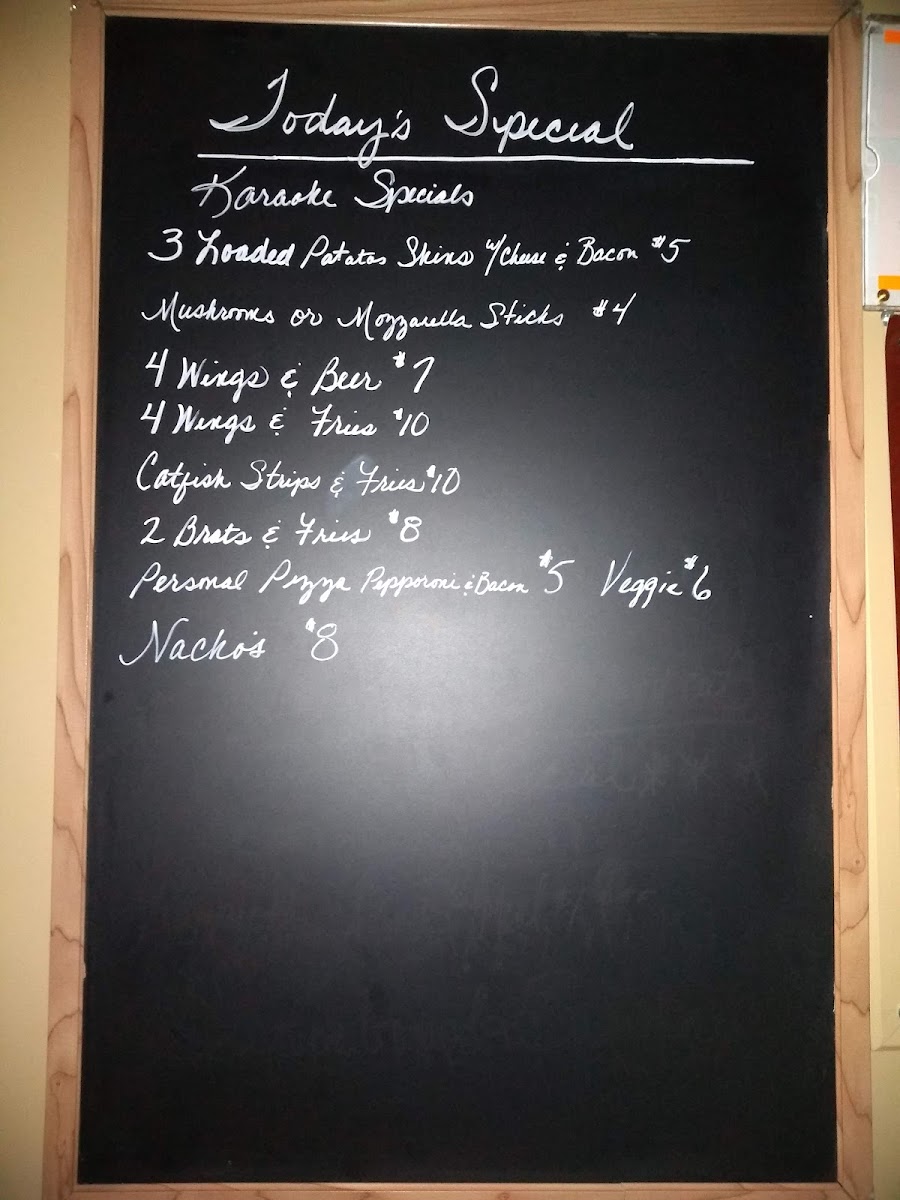 Today's Special
Karaoke Specials
3 Loaded Patatos Skins w/Cheese & Bacon $5
Mushrooms or Mozzarella Sticks $4
4 Wings & Beer $7
4 Wings & Fries $10
Catfish Strips & Fries $10
2 Brats & Fries $8
Personal Pizza Pepporoni & Bacon $5 Veggie $6
Nacho's $8